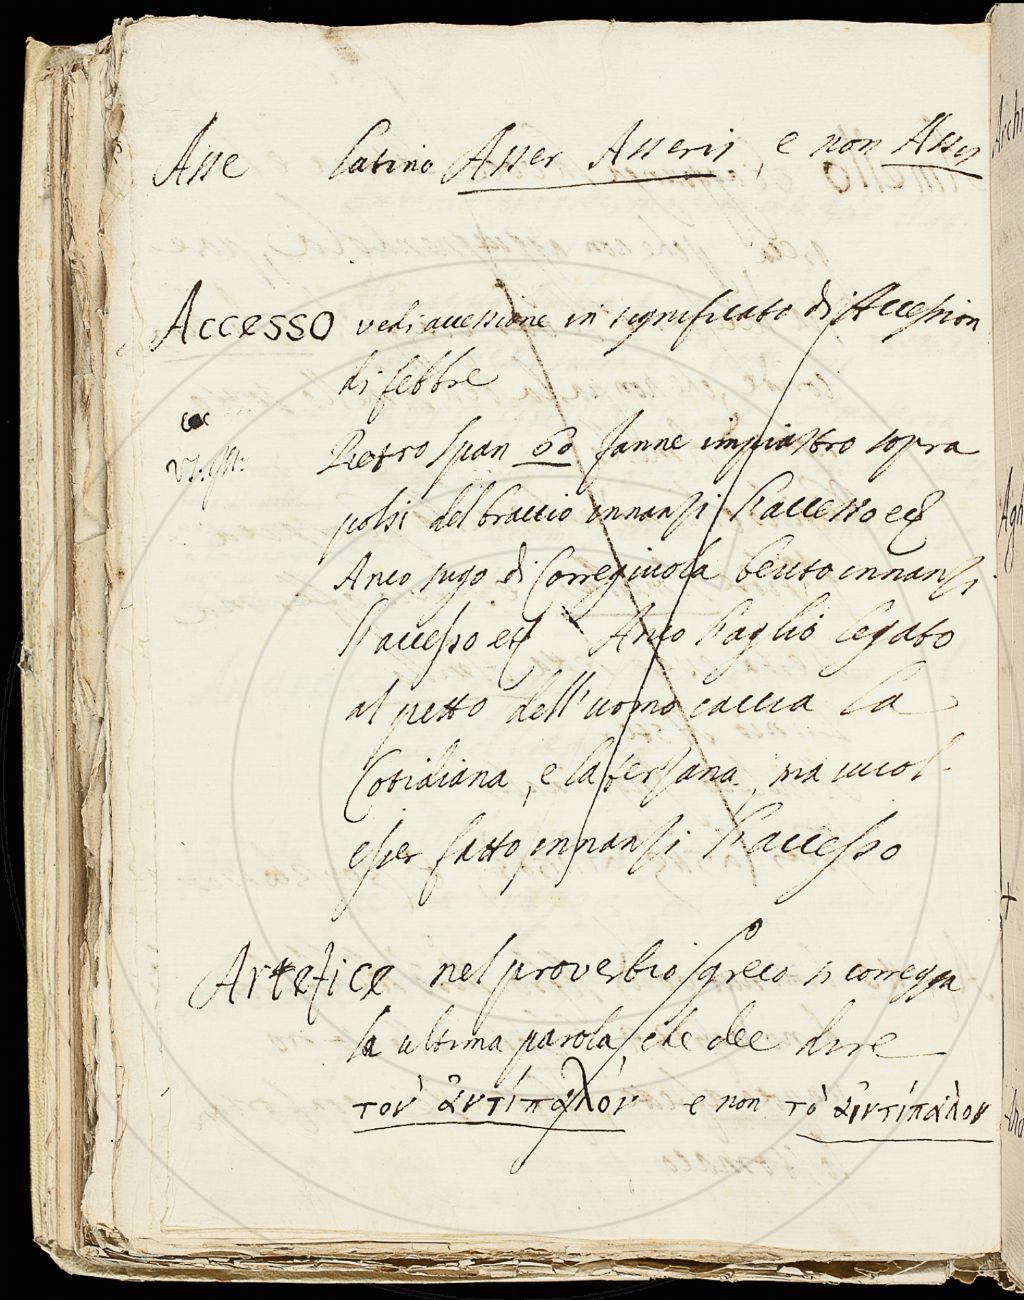 Asse latino Asser Asseris, e non Assis
Accesso vedi accessione in significato di Accession
di febbre
Pietro span 60 fanne impiastro sopra
polsi del braccio innanzi l'accesso ec
Anco sugo di Corregiuola beuto innanzi
l'accesso ec Anco l'aglio legato
al petto dell'uomo caccia la
Cotidiana, e la terzana, ma vuol
esser fatto innanzi l'accesso
Artefice nel proverbio greco si corregga
la ultima parola, che dee dire
τὸν ἀντίπαλόν e non τὸ ἀντίπαλον